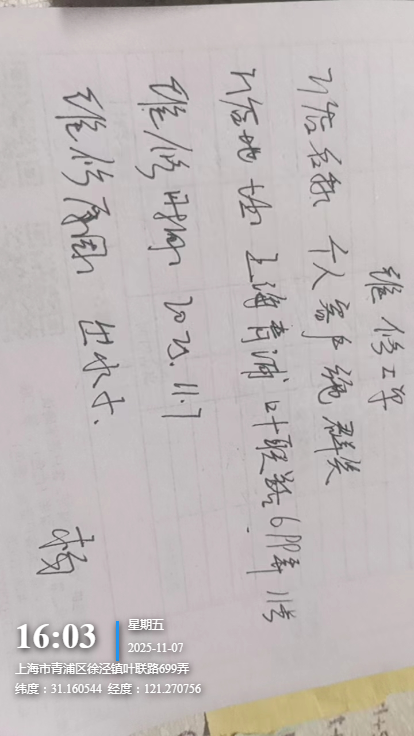 维修工单
门店名称 个人客户 绳群英
门店地址 上海青浦叶联路699弄11号
维修时间 2025.11.7
维修原因 出水小.
杨
16:03
星期五
2025-11-07
上海市青浦区徐泾镇叶联路699弄
纬度：31.160544 经度：121.270756